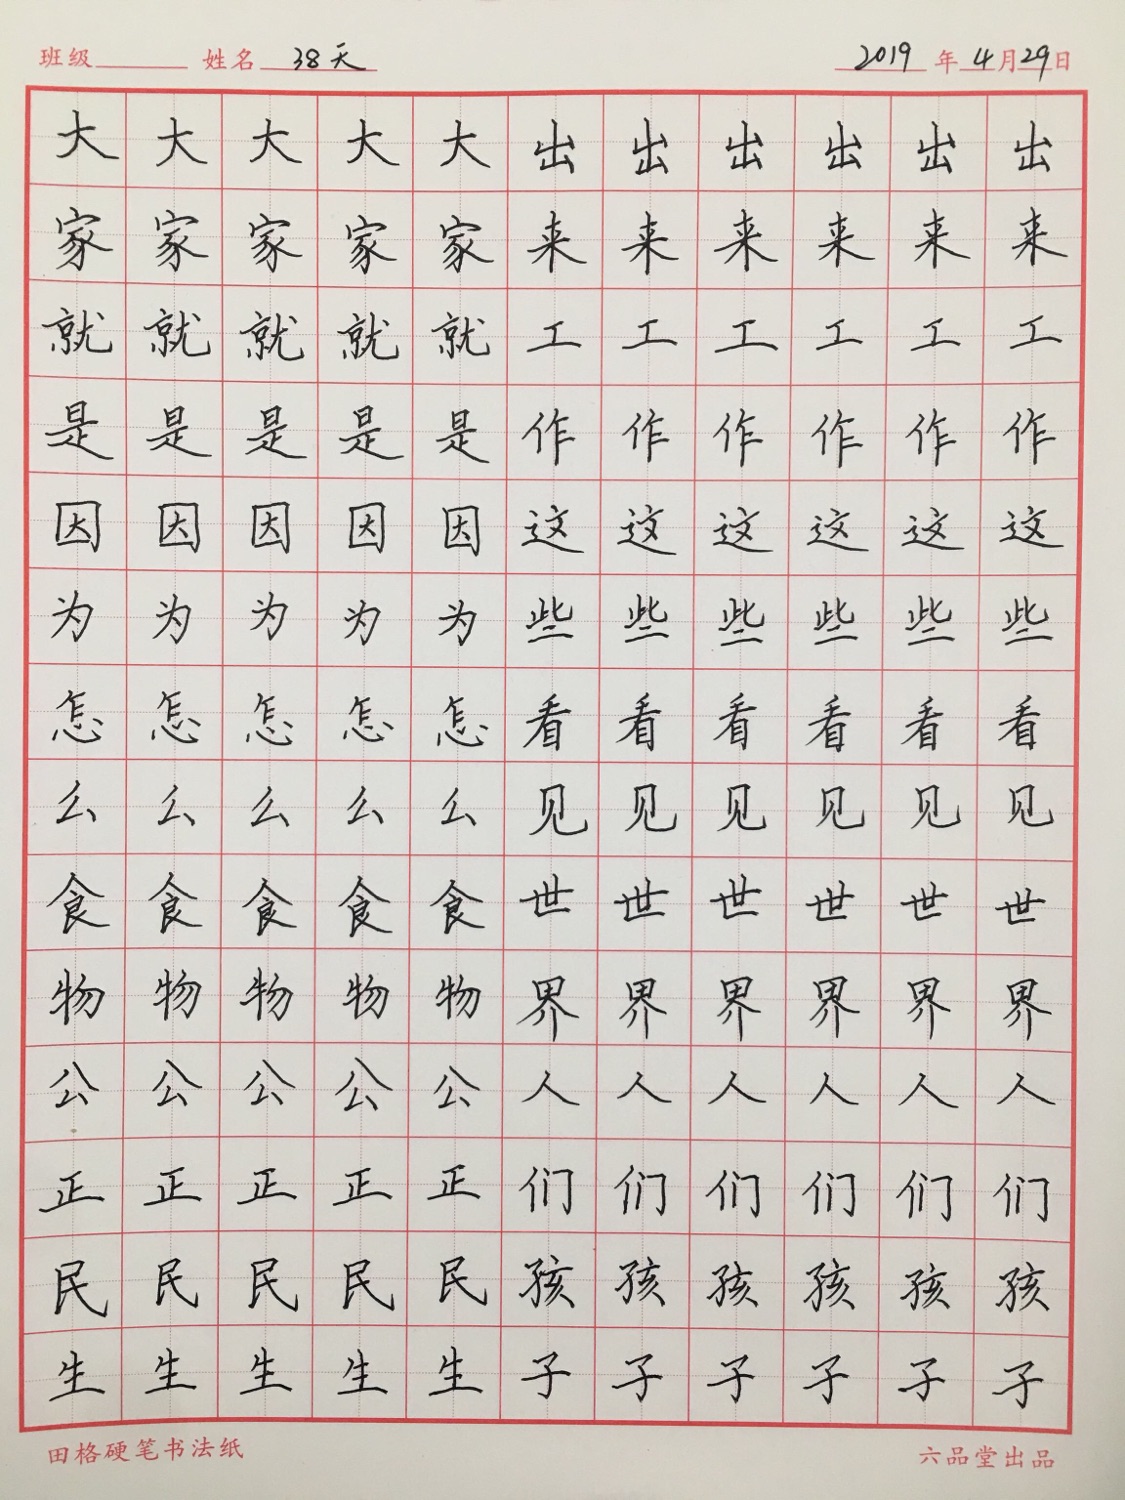 班级 姓名 38天 2019年4月29日
大大大大大出出出出出出
家家家家家来来来来来来
就就就就就工工工工工工
是是是是是作作作作作作
因因因因因这这这这这这
为为为为为些些些些些些
怎怎怎怎怎看看看看看看
么么么么么见见见见见见
食食食食食世世世世世世
物物物物物界界界界界界
公公公公公人人人人人人
正正正正正们们们们们们
民民民民民孩孩孩孩孩孩
生生生生生子子子子子子
田格硬笔书法纸 六品堂出品